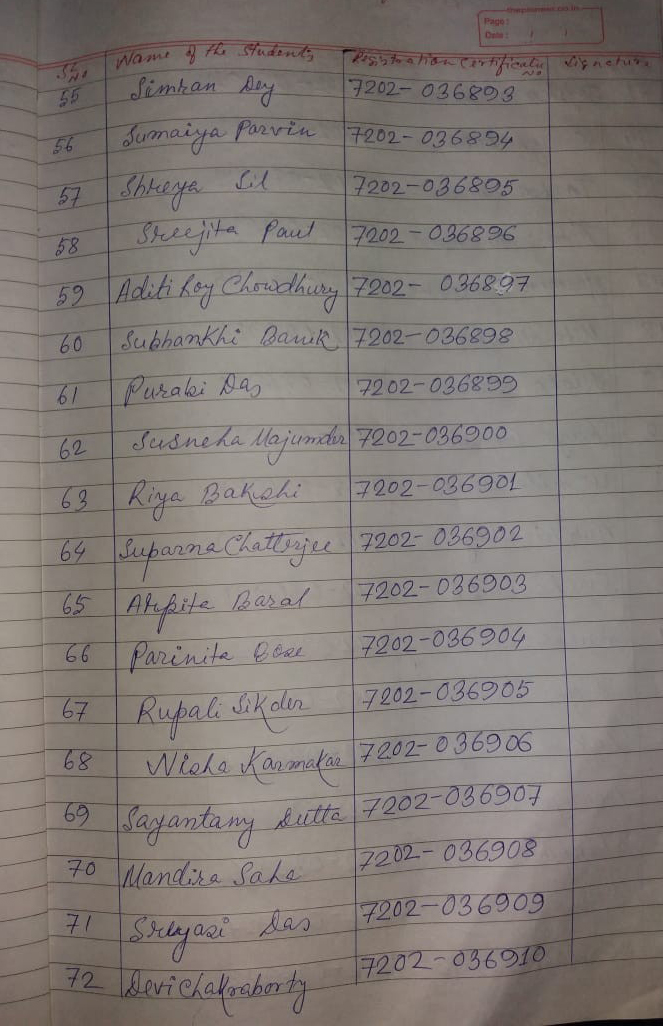 Page:
Date:
Sl. No Name of the Students Registration Certificate No Signature
55 Simran Dey 7202-036893
56 Sumaiya Parvin 7202-036894
57 Shreya Sil 7202-036895
58 Sreejita Paul 7202-036896
59 Aditi Roy Chowdhury 7202-036897
60 Subhankhi Banik 7202-036898
61 Purabi Das 7202-036899
62 Susneha Majumder 7202-036900
63 Riya Bakshi 7202-036901
64 Suparna Chatterjee 7202-036902
65 Arpita Baral 7202-036903
66 Parinita Bose 7202-036904
67 Rupali Sikder 7202-036905
68 Nisha Karmakar 7202-036906
69 Sayantany Dutta 7202-036907
70 Mandira Saha 7202-036908
71 Sreyasi Das 7202-036909
72 Devi Chakraborty 7202-036910